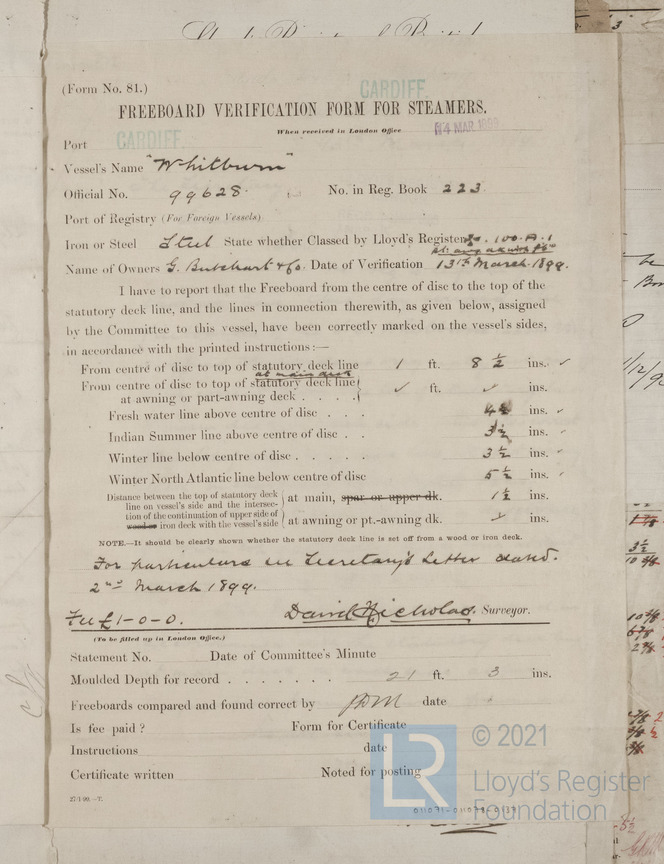 (Form No. 81.)
CARDIFF
FREEBOARD VERIFICATION FORM FOR STEAMERS.
When received in London Office
14 MAR 1899
Port CARDIFF
Vessel's Name "Whitburn"
Official No. 99628. No. in Reg. Book 223
Port of Registry (For Foreign Vessels)
Iron or Steel Steel State whether Classed by Lloyd's Register 100.A.1
Name of Owners G. Butchart & Co. Date of Verification 13th March. 1899.
I have to report that the Freeboard from the centre of disc to the top of the
statutory deck line, and the lines in connection therewith, as given below, assigned
by the Committee to this vessel, have been correctly marked on the vessel's sides,
in accordance with the printed instructions:—
From centre of disc to top of statutory deck line 1 ft. 8 ½ ins. ✓
at main deck
From centre of disc to top of statutory deck line ✓ ft. ✓ ins.
at awning or part-awning deck . . . .
Fresh water line above centre of disc . . . 4½ ins. ✓
Indian Summer line above centre of disc . . 3½ ins. ✓
Winter line below centre of disc . . . . . 3½ ins. ✓
Winter North Atlantic line below centre of disc 5½ ins. ✓
Distance between the top of statutory deck
line on vessel's side and the intersec-
tion of the continuation of upper side of
wood or iron deck with the vessel's side
at main, spar or upper dk. 1½ ins.
at awning or pt.-awning dk. ✓ ins.
NOTE.—It should be clearly shown whether the statutory deck line is set off from a wood or iron deck.
For particulars see Secretary's Letter dated.
2nd March 1899.
Fee £1-0-0. David Nicholas. Surveyor.
(To be filled up in London Office.)
Statement No. Date of Committee's Minute
Moulded Depth for record . . . . . . . 21 ft. 3 ins.
Freeboards compared and found correct by date
Is fee paid? Form for Certificate
Instructions date
Certificate written Noted for posting
27/1/99.—T.
LR
© 2021
Lloyd's Register
Foundation